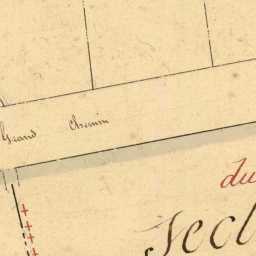 Grand Chemin
du
Sect